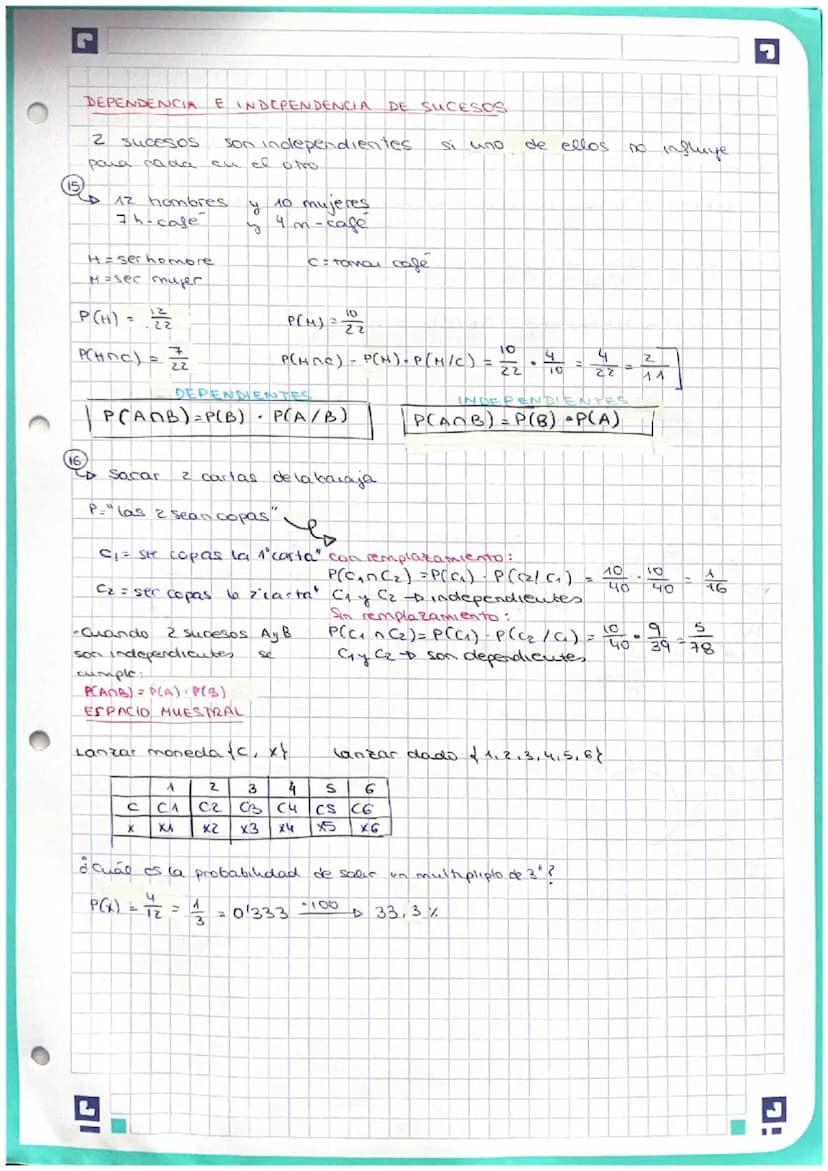 DEPENDENCIA E INDEPENDENCIA DE SUCESOS
2 sucesos son independientes si uno de ellos no influye
para nada en el otro
15 → 12 hombres y 10 mujeres
7 h-café y 4 m-café
H = ser hombre C = tomar café
M = ser mujer
P(H) = 12/22 P(M) = 10/22
P(H∩C) = 7/22 P(M∩C) = P(M) · P(M/C) = 10/22 · 4/10 = 4/22 = 2/11
DEPENDIENTES INDEPENDIENTES
P(A∩B) = P(B) · P(A/B) P(A∩B) = P(B) · P(A)
16 → Sacar 2 cartas de la baraja
P = "las 2 sean copas"
C₁ = ser copas la 1ª carta" con remplazamiento:
P(C₁∩C₂) = P(C₁) · P(C₂/C₁) = 10/40 · 10/40 = 1/16
C₂ = ser copas la 2ª carta" C₁ y C₂ → independientes
Sin remplazamiento:
-Cuando 2 sucesos A y B P(C₁∩C₂) = P(C₁) · P(C₂/C₁) = 10/40 · 9/39 = 5/78
son independientes se C₁ y C₂ → son dependientes
cumple:
P(A∩B) = P(A) · P(B)
ESPACIO MUESTRAL
Lanzar moneda {C, X} Lanzar dado {1,2,3,4,5,6}
1 2 3 4 5 6
C C1 C2 C3 C4 C5 C6
X X1 X2 X3 X4 X5 X6
¿Cuál es la probabilidad de salir un multipliplo de 3"?
P(X) = 4/12 = 1/3 = 0'333 ·100 → 33,3%